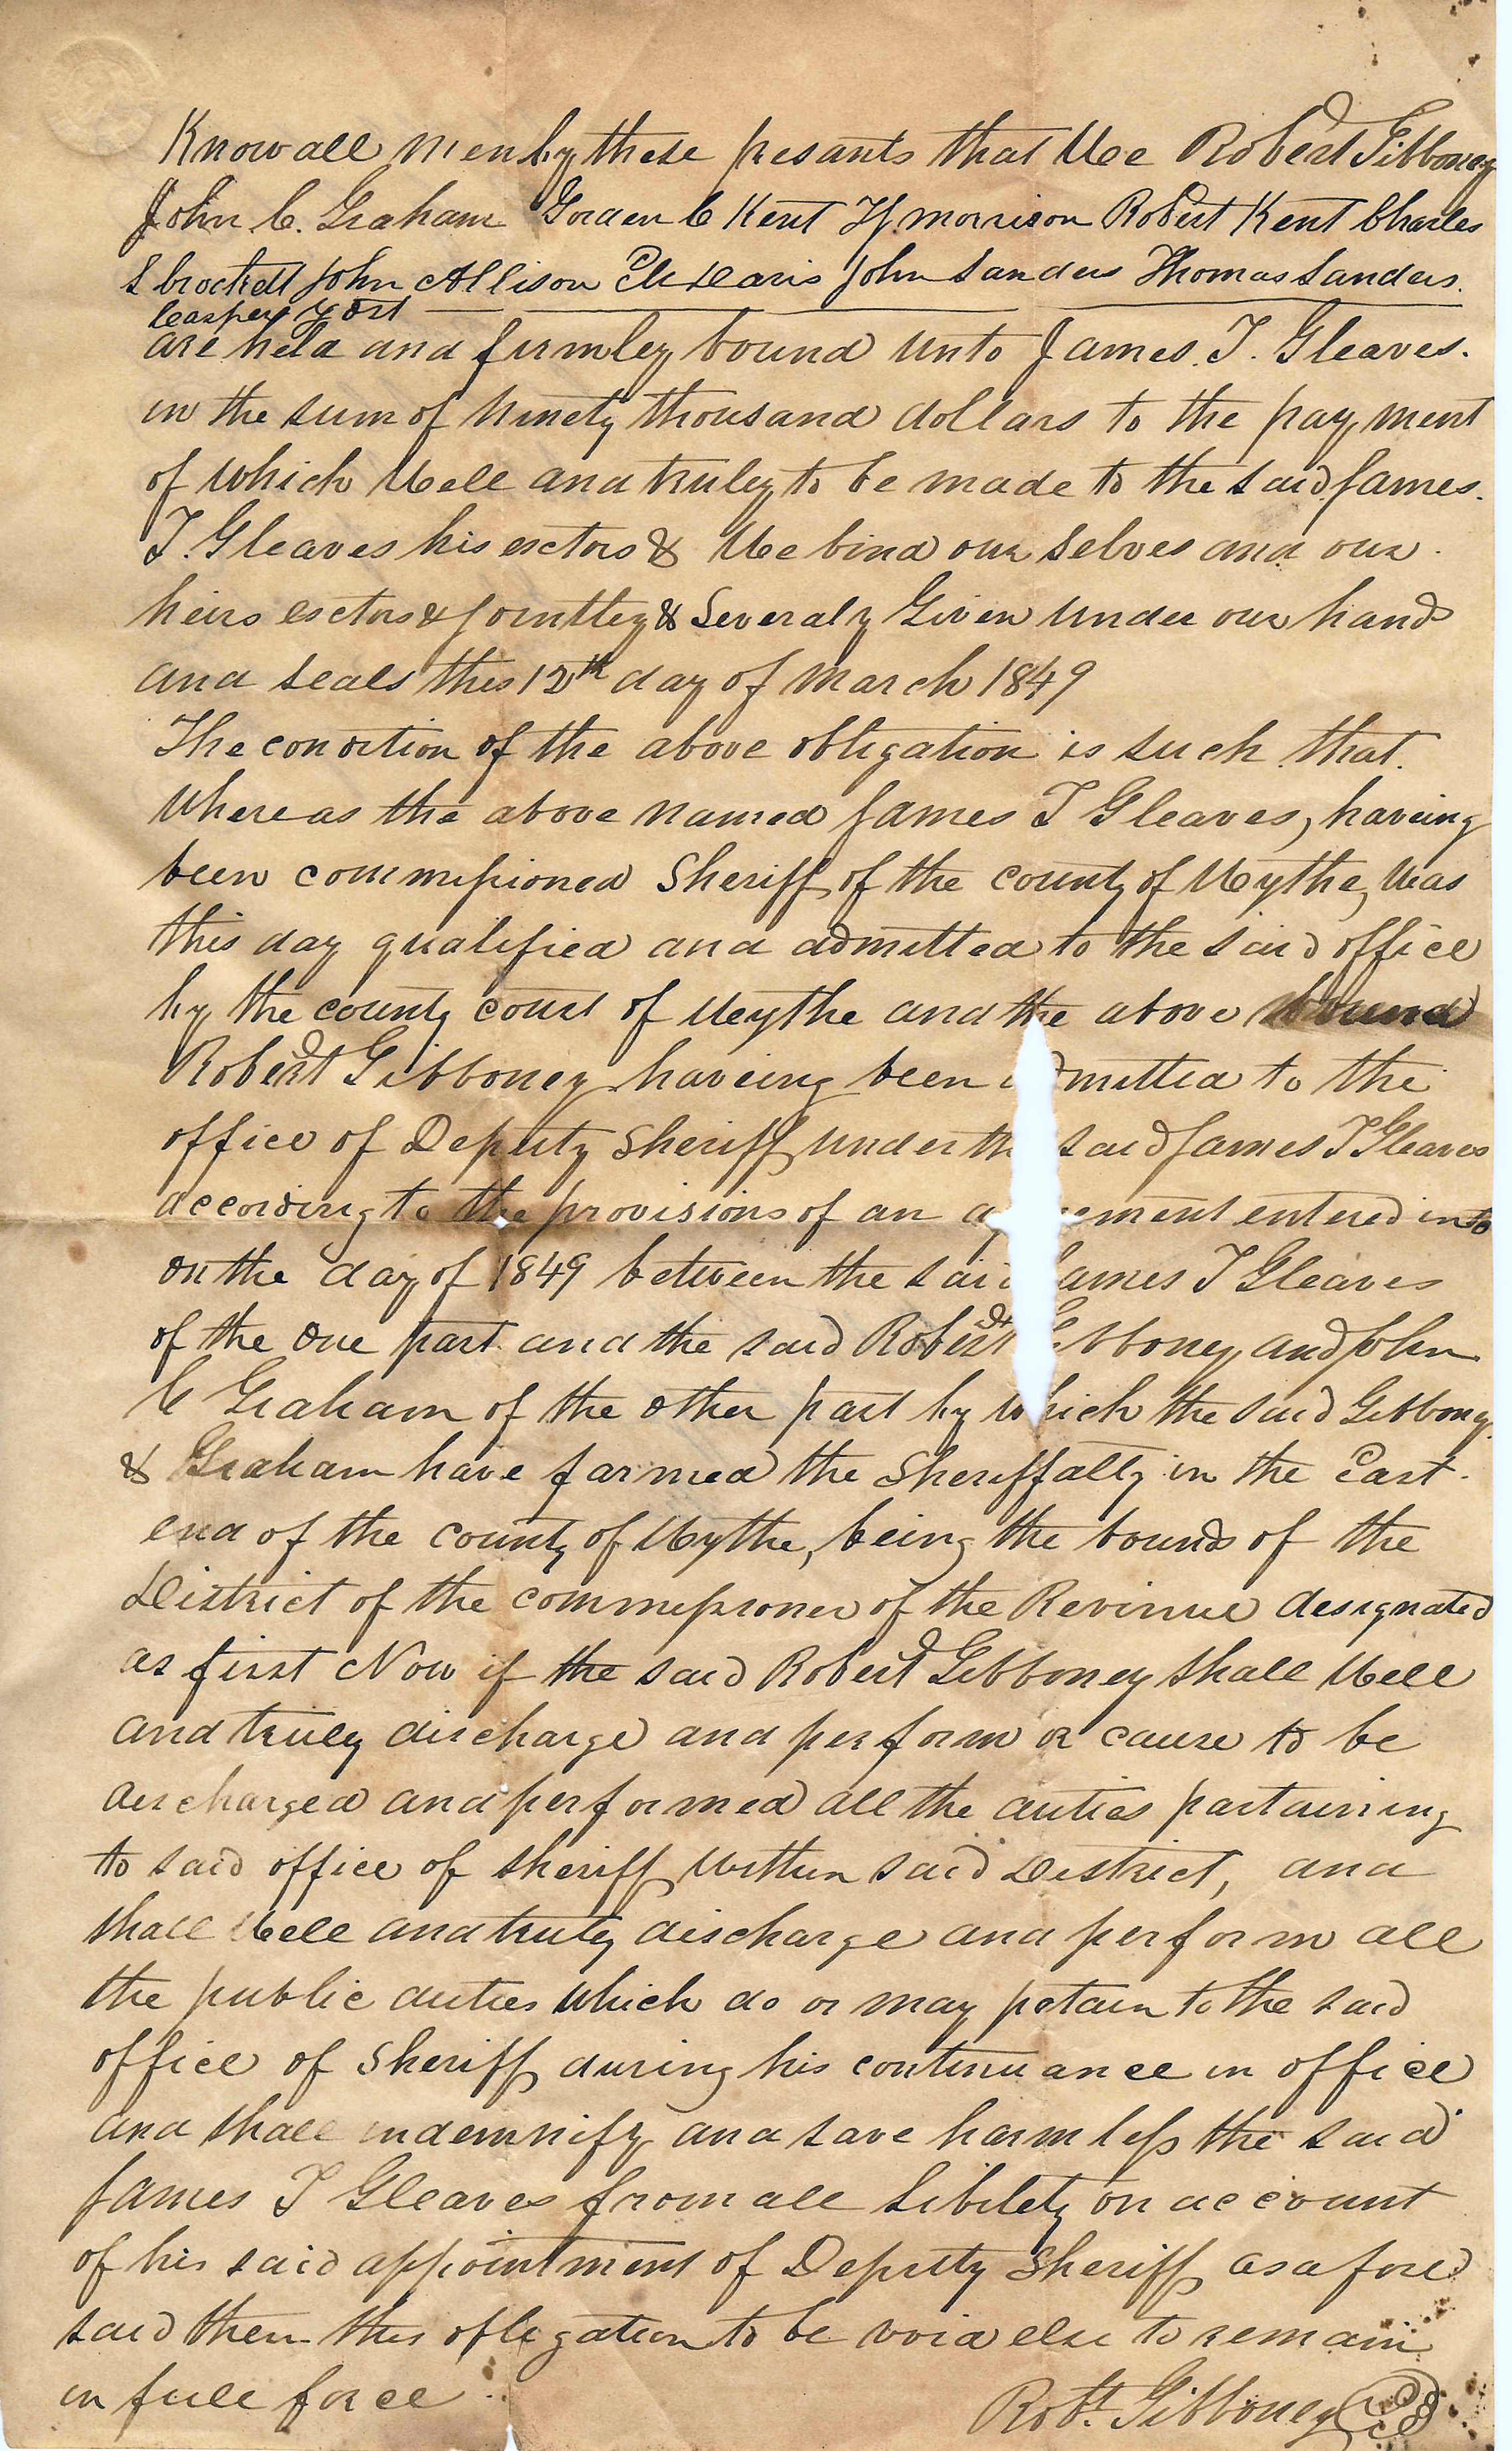 Know all men by these presants that We Robert Gibboney
John C. Graham Gorden C Kent H J morrison Robert Kent Charles
S brockett John Allison Eli Davis John Sanders Thomas Sanders.
Casper Yost
are held and firmley bound unto James. T. Gleaves.
in the sum of Ninety thousand dollars to the payment
of which Well and truley to be made to the said James.
T. Gleaves his exctors & We bind our selves and our
heirs exctors & Jointley & Severaly Given under our hands
and seals this 12th day of March 1849
The condition of the above obligation is such that.
Whereas the above named James T Gleaves, haveing
been commissioned Sheriff of the county of Wythe, Was
this day qualified and admitted to the said office
by the county court of Wythe and the above bound
Robert Gibboney haveing been admitted to the
office of Deputy Sheriff under the said James T Gleaves
according to the provisions of an agreement entered into
on the day of 1849 between the said James T Gleaves
of the one part and the said Robert Gibboney and John
C Graham of the other part by which the said Gibboney
& Graham have farmed the Sheriffalty in the East
end of the county of Wythe, being the bounds of the
District of the commissioner of the Revinue designated
as first Now if the said Robert Gibboney shall Well
and truley discharge and perform or cause to be
discharged and performed all the duties partaining
to said office of sheriff Within said District, and
shall Well and truly discharge and perform all
the public duties which do or may petain to the said
office of Sheriff during his continuance in office
and shall indemnify and save harmless the said
James T Gleaves from all Libilety on account
of his said appointment of Deputy Sheriff as afore
said then this obligation to be void else to remain
in full force
Robt. Gibboney